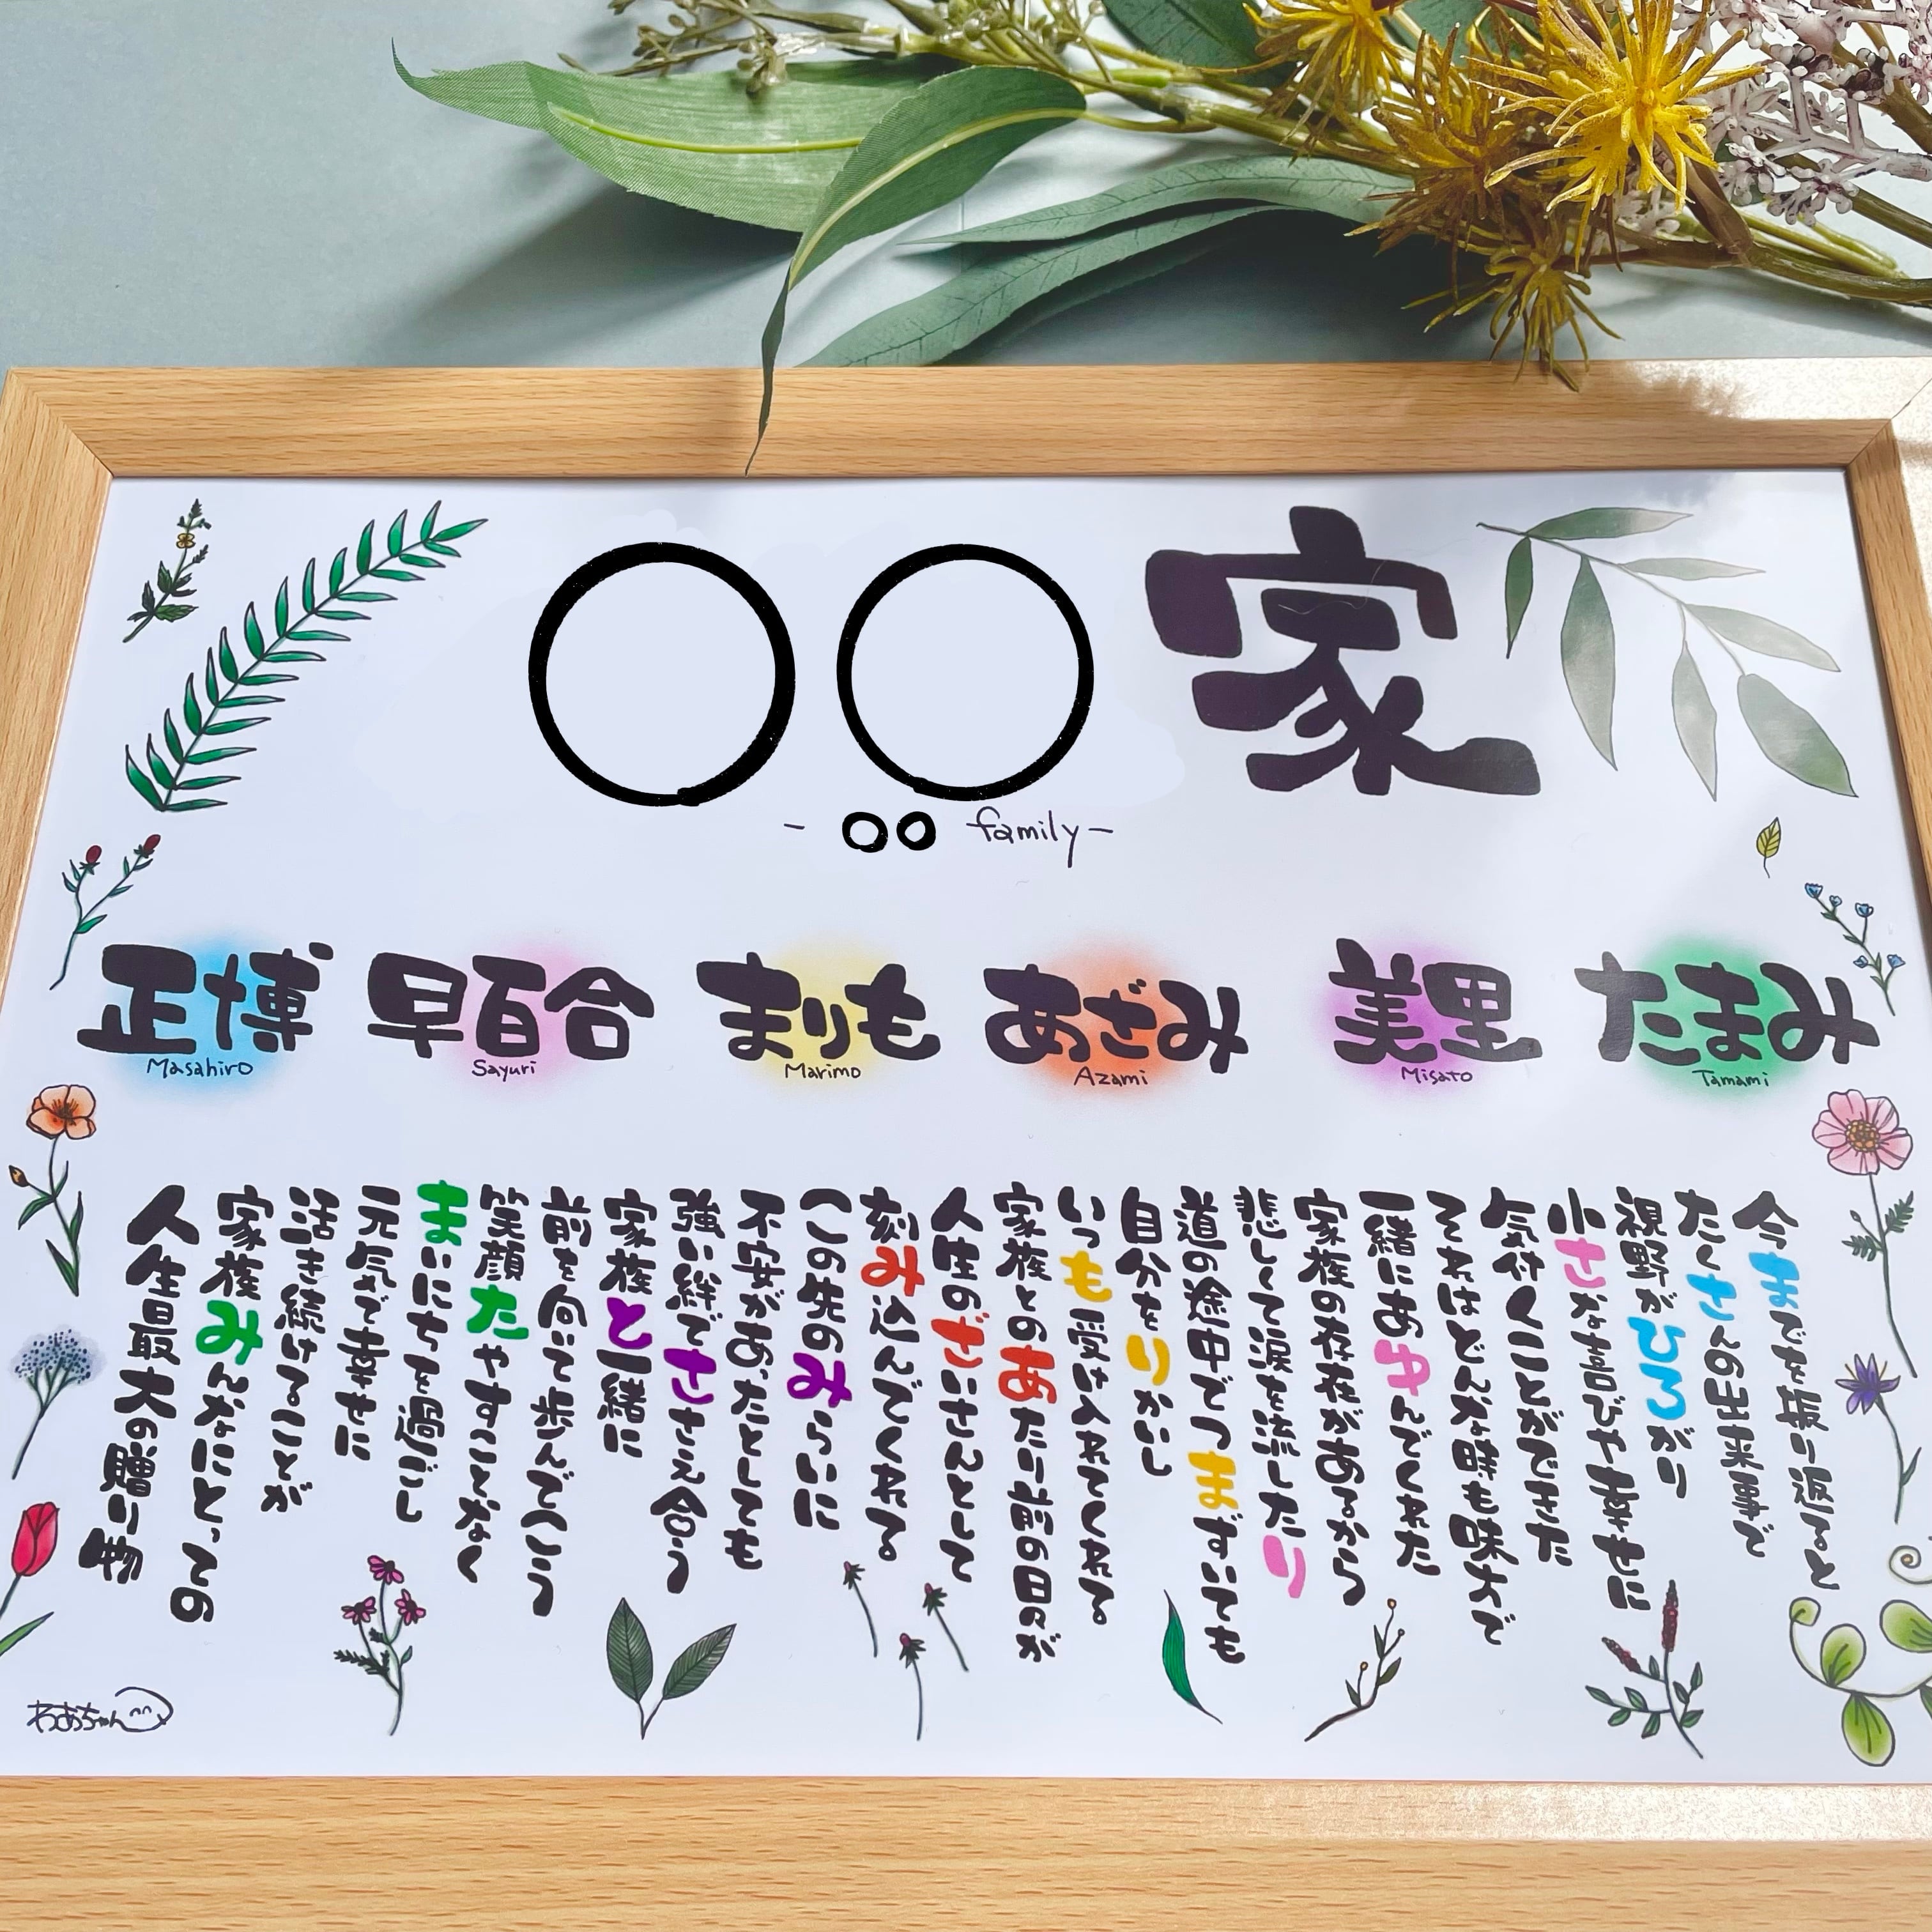 〇〇家
- 〇〇 family -
正博
Masahiro
早百合
Sayuri
まりも
Marimo
あざみ
Azami
美里
Misato
たまみ
Tamami
今までを振り返ると
たくさんの出来事で
視野がひろがり
小さな喜びや幸せに
気付くことができた
それはどんな時も味方で
一緒にあゆんでくれた
家族の存在があるから
悲しくて涙を流したり
道の途中でつまずいても
自分をりかいし
いつも受け入れてくれる
家族とのあたり前の日々が
人生のざいさんとして
刻み込んでくれてる
この先のみらいに
不安があったとしても
強い絆でささえ合う
家族と一緒に
前を向いて歩んでこう
笑顔たやすことなく
まいにちを過ごし
元気で幸せに
活き続けることが
家族みんなにとっての
人生最大の贈り物
わあちゃん